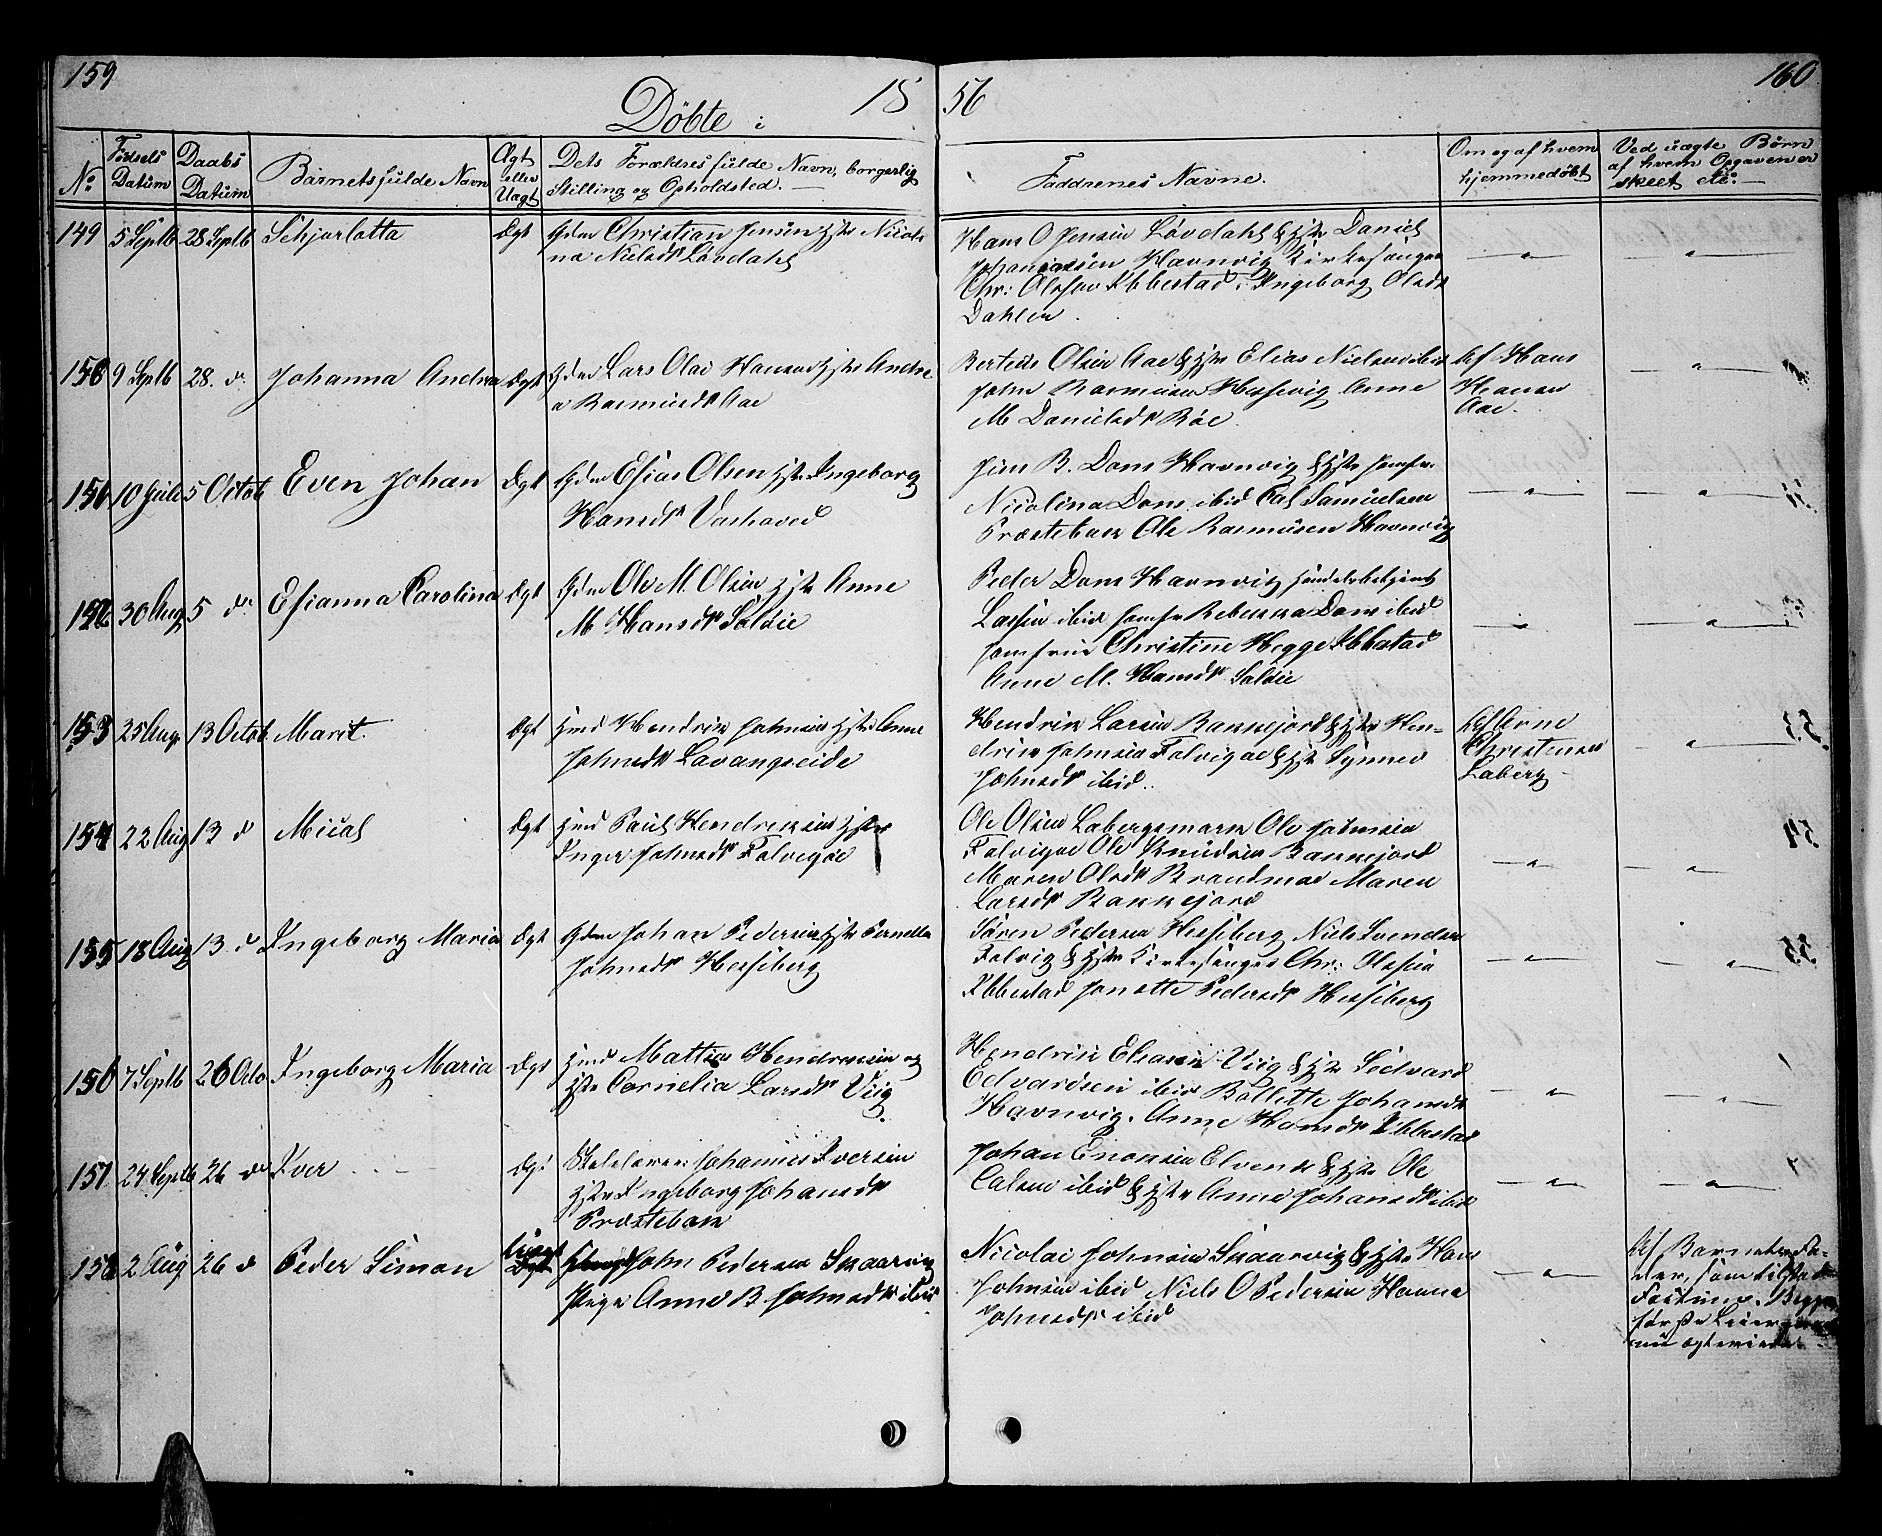 159
Döbte i 18
56
160
No
Födsels Datum
Daabs Datum
Barnets fulde Navn
Ægt eller Uægt
Dets Forældres fulde Navn, borgerlig
Stilling og Opholdsted.
Faddrenes Navne.
Om og af hvem
hjemmedöbt
Ved uægte Börn
af hvem Opgaven er
skeet etc:
149 5 Septb 28 Septb Schjarlotta Ægt Gdm Christian Jensen Hstr Nicol
na Nielsdr Lövdahl
Hans O Jensen Lövdahl & Hstr Daniel
Johannesen Havnvig Kirkesanger
Chr: Olesen Ibbestad Ingeborg Olsdr
Dahlen.
150 9 Septb 28. do Johanna Andrea Ægt Gdm Lars Olai Hansen Hstr Andre
a Rasmusdr Aae
Berteus Olsen Aae & Hstr Elias Nielsen ibid
John Rasmusen Hessevig Anne
M Danielsdr Röe.
Af Hans
Hansen
Aae.
151 10 Juli 5 Octob Even Johan Ægt Gdm Esias Olsen Hstr Ingeborg
Hansdr Vashaved
Jens B. Dons Havnvig & Hstr Jomfr.
Nicolina Dons ibid Cal Samuelsen
Præstebak Ole Rasmusen Havnvig
152 30 Aug 5 do Esianna Carolina Ægt Gdm Ole M. Olsen Hstr Anne
M Hansdr Saldie
Peder Dons Havnvig Handelsbetjent
Lassen ibid Jomfr Rebekka Dons ibid
Jomfrue Christine Hegge Ibbestad
Anne M. Hansdr Saldie
153 25 Aug 13 Octob Marit. Ægt Hmd Hendrik Johnsen Hstr Anne
Johnsdr Lavangseide
Hendrik Larsen Bankejord & Hstr Hen-
drik Johnsen Folvigae & Hstr Synnev
Johnsdr ibid.
Af Arne
Christensen
Laberg
154 22 Aug 13 d Micael Ægt Hmd Paul Hendriksen Hstr
Inger Johnsdr Folvigae
Ole Olsen Labergsmark Ole Johnsen
Folvigae Ole Knudsen Bankejord
Maren Olsdr Brandmoe Maren
Larsdr Bankejord
155 18 Aug 13 d Ingeborg Maria Ægt Gdm Johan Pedersen Hstr Pernella
Johnsdr Hessberg
Sören Pedersen Hessberg Niels Svendsen
Folvig & Hstr Kirkesanger Chr: Olesen
Ibbestad Janette Pedersdr Hessberg
156 7 Septb 26 Octo Ingeborg Maria Ægt Hmd Mattias Hendriksen og
Hstr Cornelia Larsdr Viig.
Hendrik Eliasen Viig & Hstr Sedvard
Edvardsen ibid Bollette Johansdr
Havnvig. Anne Hansdr Ibbestad
157 24 Septb 26 do Iver Ægt Skolelærer Johannes Iversen
Hstr Ingeborg Johansdr
Præstebak
Johan Enoksen Elvenes & Hstr Ole
Calsen ibid & Hstr Anne Johansdr ibid
158 2 Aug 26 d Peder Simon Uægt John Pedersen Skaarvig
Pige Anne B. Johnsdr ibid
Nicolai Johnsen Skaarvig & Hstr Hans
Johnsen ibid Niels O Pedersen Hanna
Johnsdr ibid
Af Barnets Fa-
der, som tilstod
Begges
förste Leier
nu ægteviede.
53
54
55